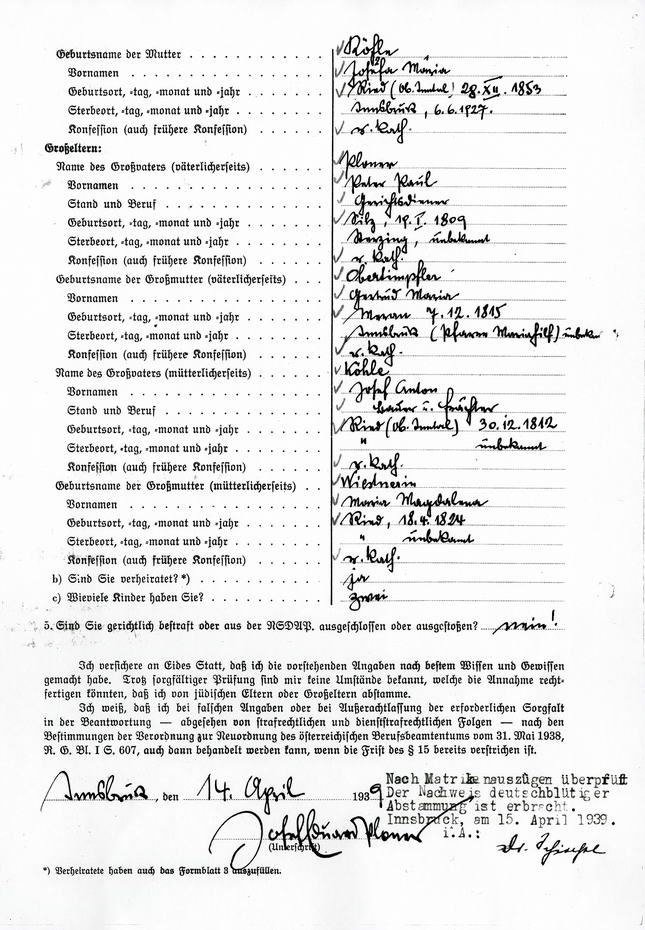 Geburtsname der Mutter . . . . . . . . . . Köhle
Vornamen . . . . . . . . . . . . . Josefa Maria
Geburtsort, -tag, -monat und -jahr . . . . . . Ried (Ob. Inntal) 28. XII. 1853
Sterbeort, -tag, -monat und -jahr . . . . . . Innsbruck, 6.6.1927.
Konfession (auch frühere Konfession) . . . . . . r. kath.
Großeltern:
Name des Großvaters (väterlicherseits) . . . . . Ploner
Vornamen . . . . . . . . . . . . . Peter Paul
Stand und Beruf . . . . . . . . . . . Gerichtsdiener
Geburtsort, -tag, -monat und -jahr . . . . . . Silz, I. 1809
Sterbeort, -tag, -monat und -jahr . . . . . . Sterzing, unbekannt
Konfession (auch frühere Konfession) . . . . . . r. kath.
Geburtsname der Großmutter (väterlicherseits) . . Obertimpfler
Vornamen . . . . . . . . . . . . . Gertrud Maria
Geburtsort, -tag, -monat und -jahr . . . . . . Meran 7.12.1815
Sterbeort, -tag, -monat und -jahr . . . . . . Innsbruck (Pfarre Mariahilf)
Konfession (auch frühere Konfession) . . . . . . r. kath.
Name des Großvaters (mütterlicherseits) . . . . . Köhle
Vornamen . . . . . . . . . . . . . Josef Anton
Stand und Beruf . . . . . . . . . . . Bauer u.
Geburtsort, -tag, -monat und -jahr . . . . . . Ried (Ob. Inntal) 30.12.1812
Sterbeort, -tag, -monat und -jahr . . . . . . " unbekannt
Konfession (auch frühere Konfession) . . . . . . r. kath.
Geburtsname der Großmutter (mütterlicherseits) . .
Vornamen . . . . . . . . . . . . . Maria Magdalena
Geburtsort, -tag, -monat und -jahr . . . . . . Ried, 18.4.1824
Sterbeort, -tag, -monat und -jahr . . . . . . " unbekannt
Konfession (auch frühere Konfession) . . . . . . r. kath.
b) Sind Sie verheiratet? *) . . . . . . . . . . ja
c) Wieviele Kinder haben Sie? . . . . . . . . . zwei
5. Sind Sie gerichtlich bestraft oder aus der NSDAP. ausgeschlossen oder ausgestoßen? nein!
Ich versichere an Eides Statt, daß ich die vorstehenden Angaben nach bestem Wissen und Gewissen
gemacht habe. Trotz sorgfältiger Prüfung sind mir keine Umstände bekannt, welche die Annahme recht-
fertigen könnten, daß ich von jüdischen Eltern oder Großeltern abstamme.
Ich weiß, daß ich bei falschen Angaben oder bei Außerachtlassung der erforderlichen Sorgfalt
in der Beantwortung — abgesehen von strafrechtlichen und dienststrafrechtlichen Folgen — nach den
Bestimmungen der Verordnung zur Neuordnung des österreichischen Berufsbeamtentums vom 31. Mai 1938,
R. G. Bl. I S. 607, auch dann behandelt werden kann, wenn die Frist des § 15 bereits verstrichen ist.
Innsbruck, den 14. April 1939
Nach Matrikenauszügen überprüft
Der Nachweis deutschblütiger
Abstammung ist erbracht.
Innsbruck, am 15. April 1939.
i.A.:
Josef Eduard Ploner
(Unterschrift)
Dr.
*) Verheiratete haben auch das Formblatt 3 auszufüllen.